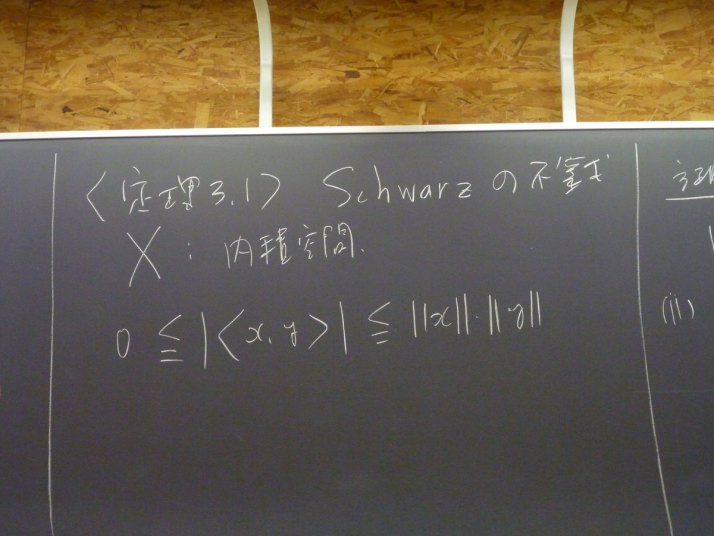 <定理3.1> Schwarz の不等式
X : 内積空間.
0 ≦ |<x, y>| ≦ ||x||·||y||
(ii)